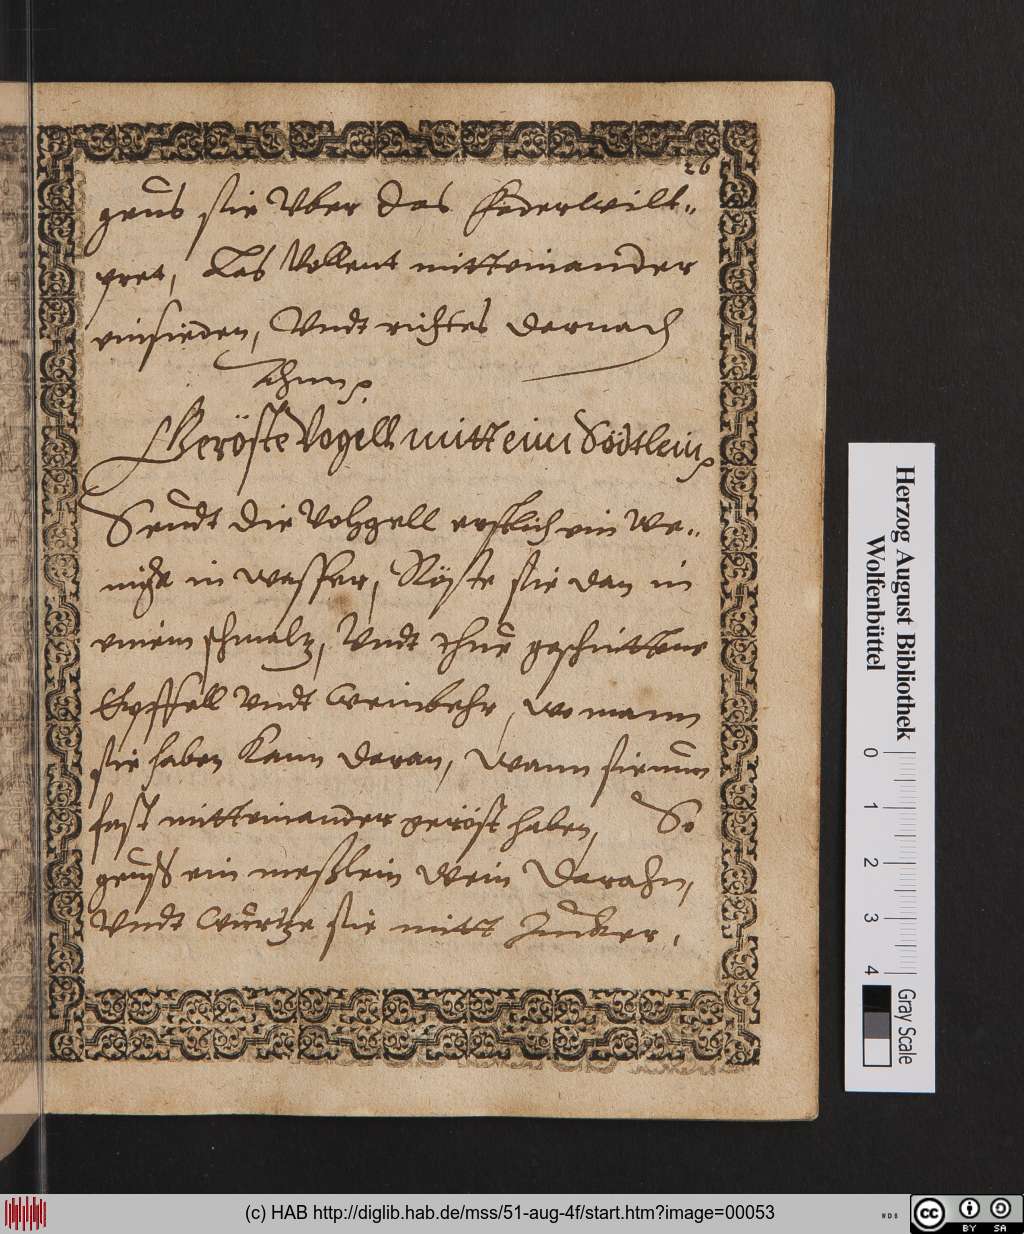 26
geuß sie Vber das Federwilt-
pret, Las Vollent mitteinander
einsieden, Vndt richtes darnach
ahnn
Geröste Vogell mitt eim Södtlein
Seudt die Vohgell erstlich ein we-
nigk in wasser, Röste sie dan in
einem schmaltz, Vndt thue geschnittene
Epffell Vndt weinbehr, wo mann
sie haben kann daran, Wann sie nun
fast mitteinander geröst haben, So
geuß ein meßlein Wein darahn,
Vndt würtze sie mitt Zucker,
Herzog August Bibliothek
Wolfenbüttel
0 1 2 3 4
Gray Scale
(c) HAB http://diglib.hab.de/mss/51-aug-4f/start.htm?image=00053
WDB
cc BY SA